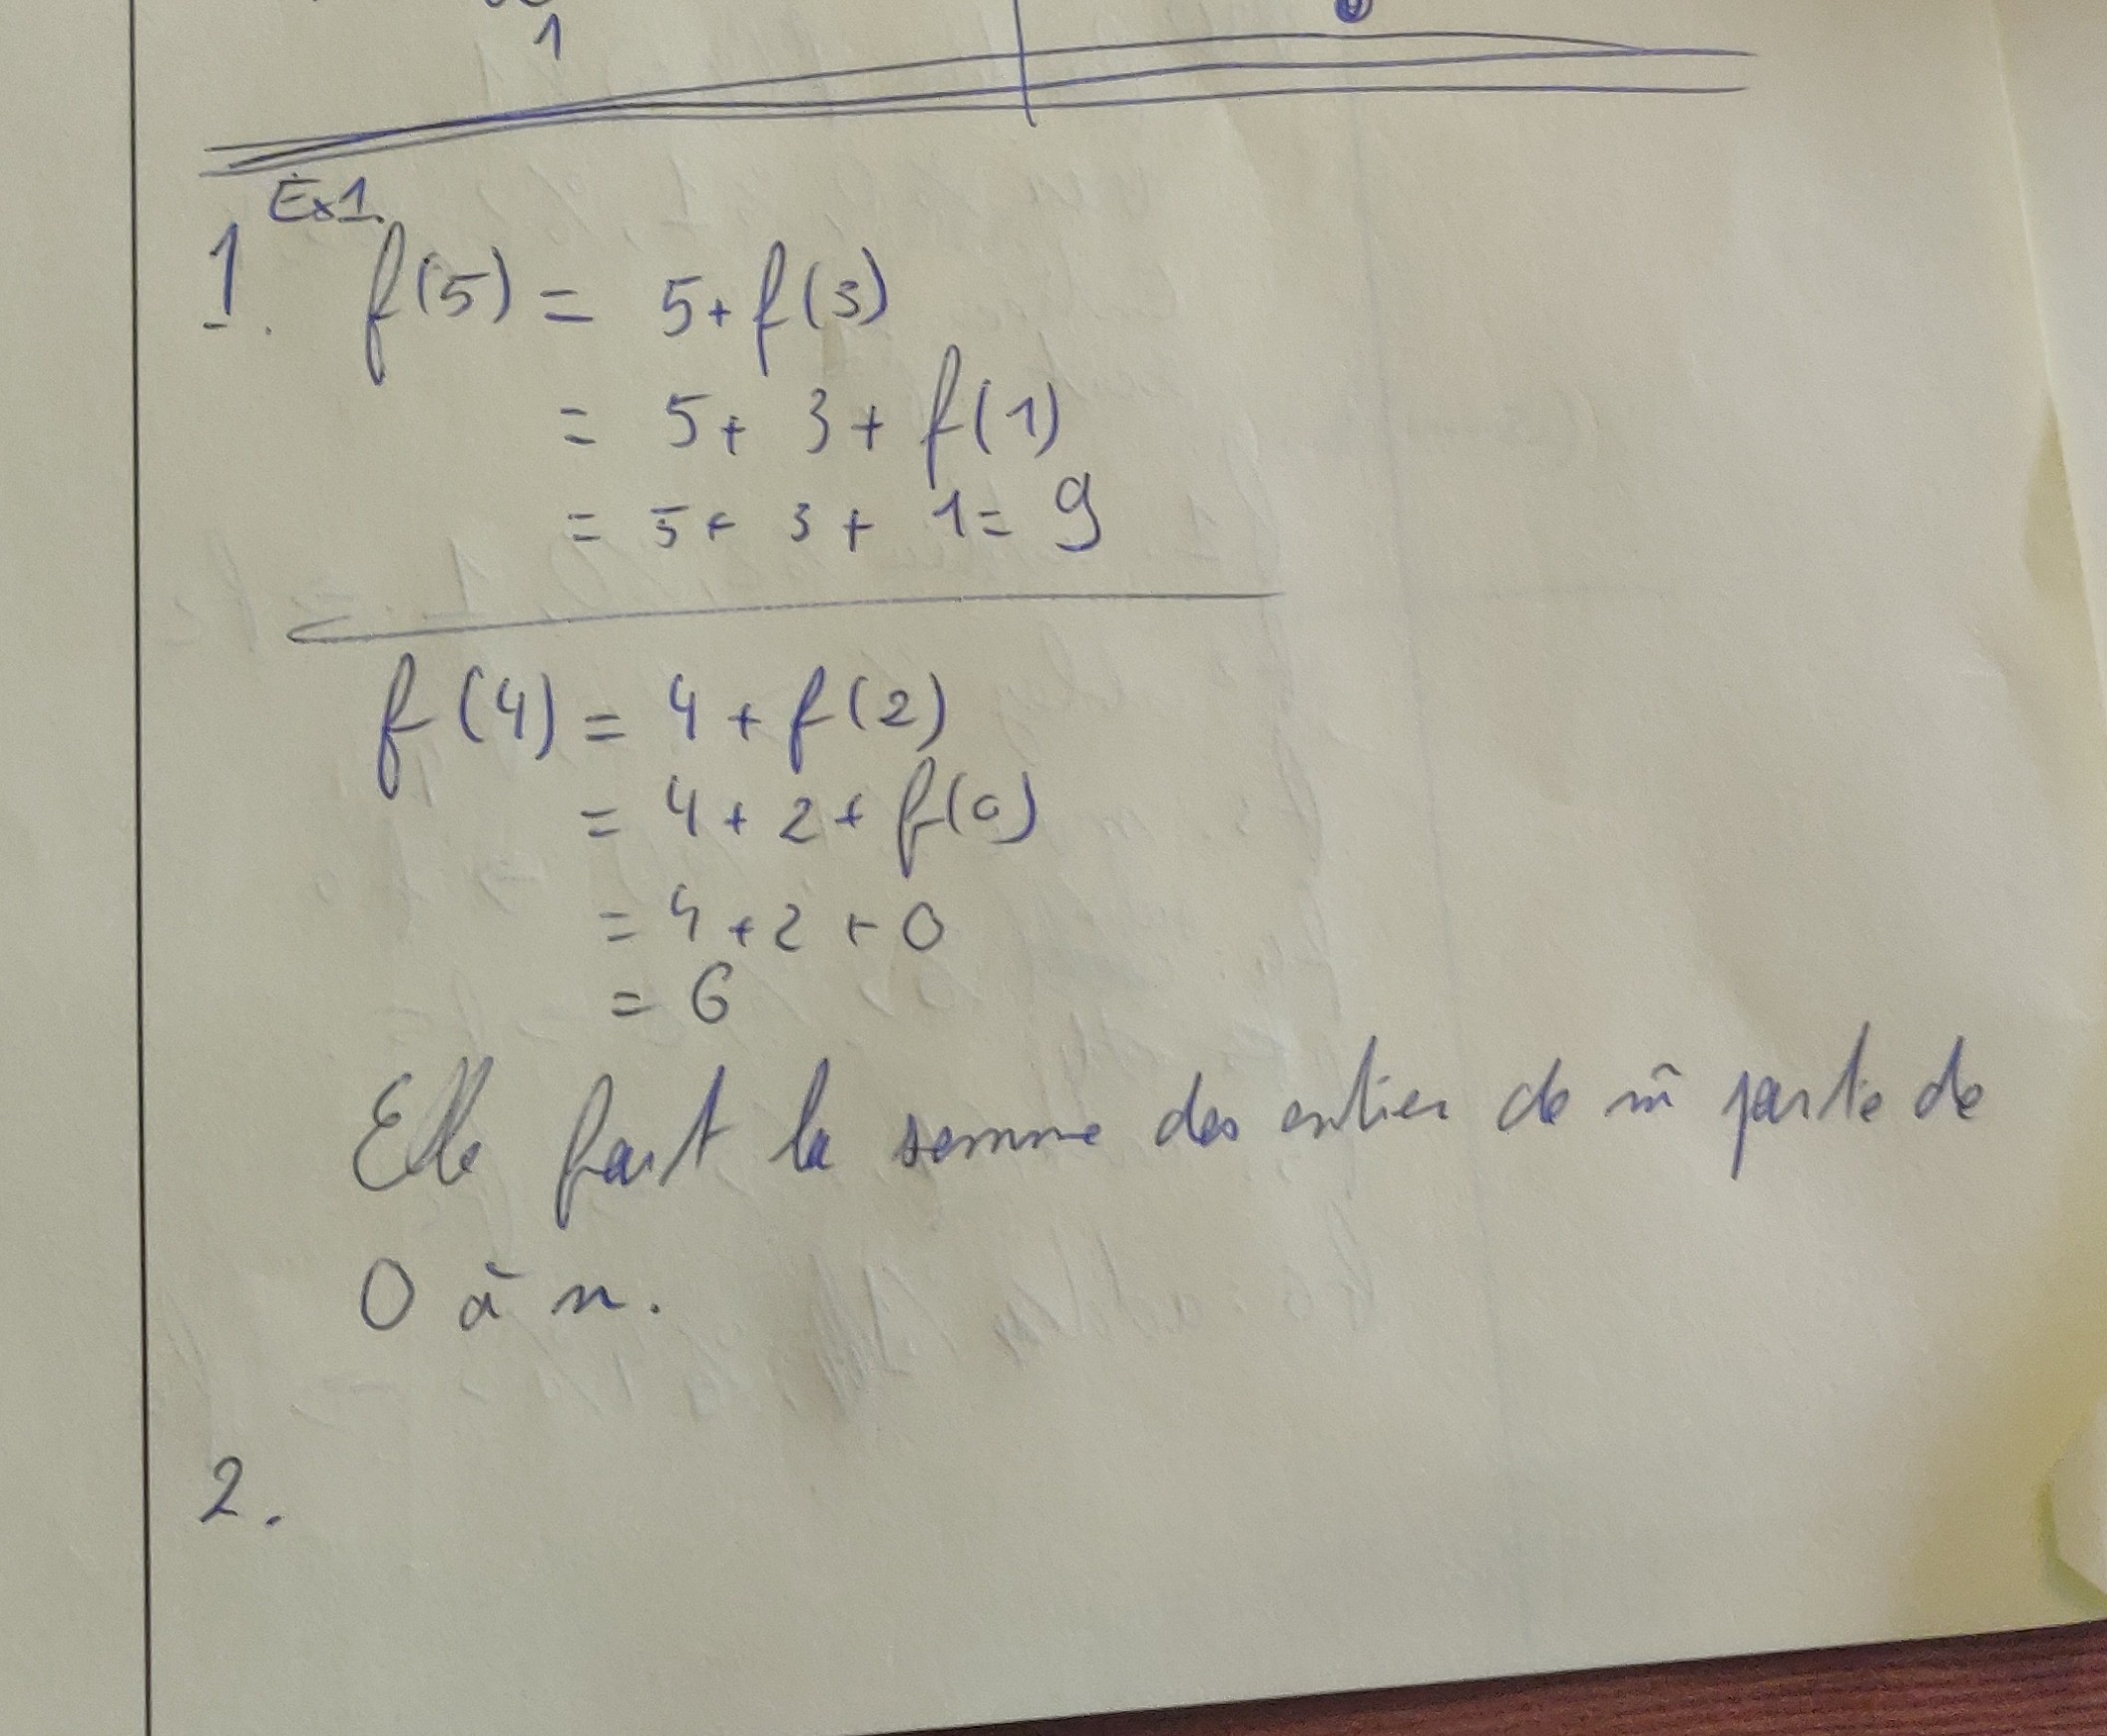 1
Ex1.
1. f(5) = 5 + f(3)
= 5 + 3 + f(1)
= 5 + 3 + 1 = 9
f(4) = 4 + f(2)
= 4 + 2 + f(0)
= 4 + 2 + 0
= 6
Elle fait la somme des entiers de m̂ parité de
0 à n.
2.